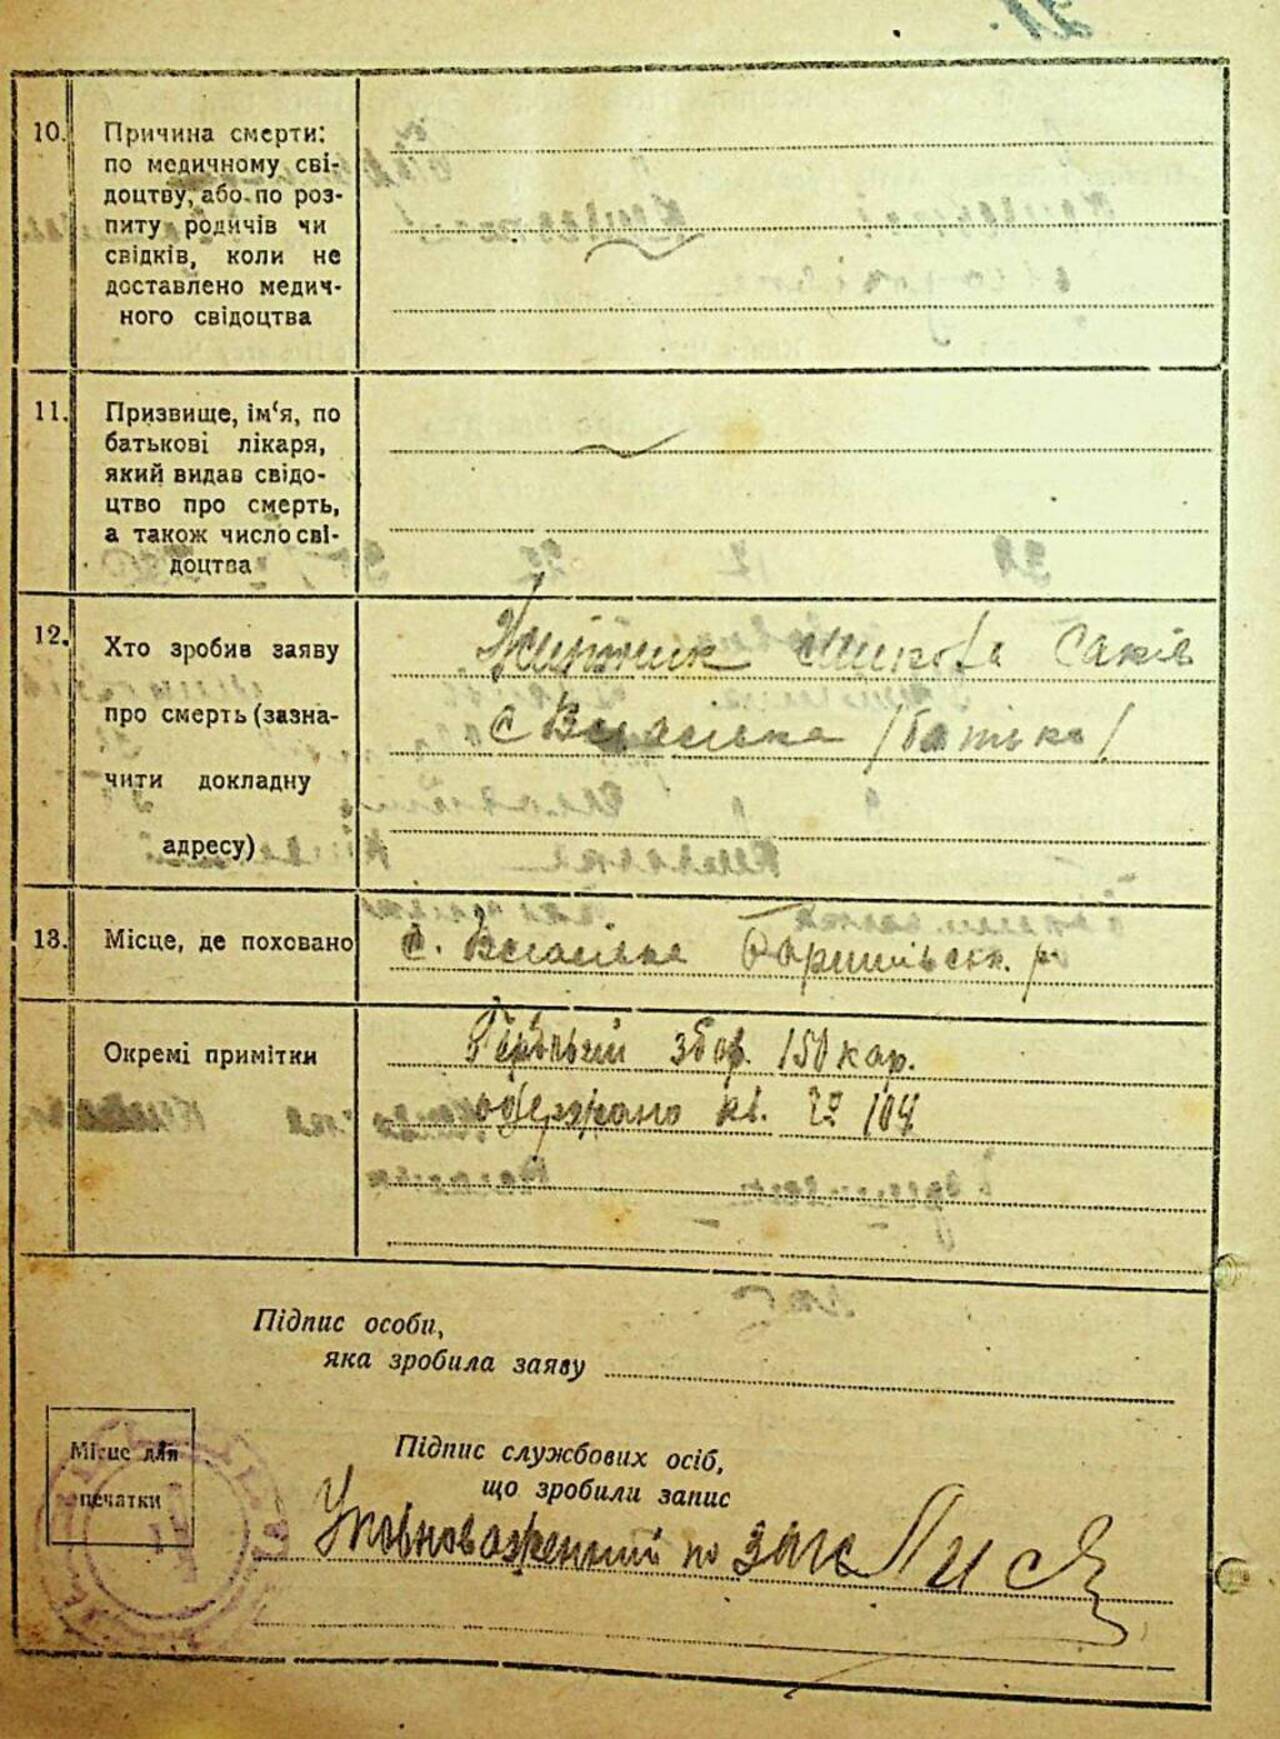 10. Причина смерти:
по медичному сві-
доцтву, або по роз-
питу родичів чи
свідків, коли не
доставлено медич-
ного свідоцтва
11. Призвище, ім‘я, по
батькові лікаря,
який видав свідо-
цтво про смерть,
а також число сві-
доцтва
12. Хто зробив заяву
про смерть (зазна-
чити докладну
адресу)
Микола Саків
с Власівка /батько/
13. Місце, де поховано
с. Власівка
Окремі примітки
Гербовий збор. 150 кар.
одержано кв. № 104
Підпис особи,
яка зробила заяву
Місце для
печатки
Підпис службових осіб,
що зробили запис
Уповноважений по загс Лися